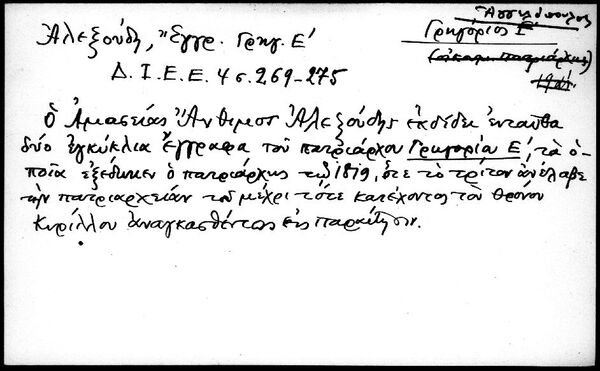 Ἀγγελόπουλος
Γρηγόριος Ε΄
(οἰκουμ. πατριάρχης)
Ἀλεξούδη, "Ἔγγρ. Γρηγ. Ε΄
Δ. Ι. Ε. Ε. 4 σ. 269-275
Ὁ Ἀμασείας Ἄνθιμος Ἀλεξούδης ἐκδίδει ἐνταῦθα
δύο ἐγκύκλια ἔγγραφα τοῦ πατριάρχου Γρηγορίου Ε΄, τὰ ὁ-
ποῖα ἐξέδωκεν ὁ πατριάρχης τῷ 1819, ὅτε τὸ τρίτον ἀνέλαβε
τὴν πατριαρχείαν τοῦ μέχρι τότε κατέχοντος τὸν θρόνον
Κυρίλλου ἀναγκασθέντος εἰς παραίτησιν.